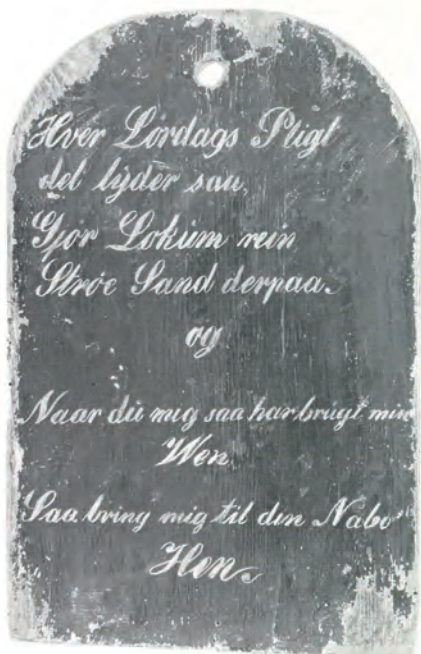 Hver Lørdags Pligt
det lÿder saa,
Gjør Lokum rein
Strøe Sand derpaa.
og
Naar dü mig saa har brügt min
Wen
Saa bring mig til din Nabo
Hen.